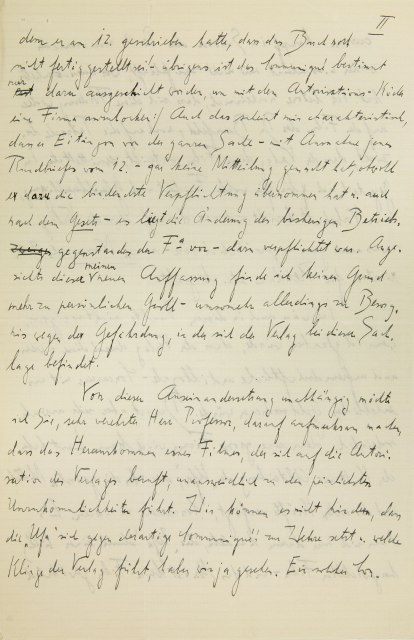 II
dem er am 12. geschrieben hatte, dass das Buch noch
nicht fertiggestellt sei! - übrigens ist das Communiqué bestimmt
nur dazu ausgeschickt worden, um mit dem Autorisations-Köder
eine Firma anzulocken! Auch das scheint mir charakteristisch,
dass er Eitingon von der ganzen Sache - mit Ausnahme jenes
Rundbriefes vom 12. - gar keine Mitteilung gemacht hat, obwohl
er dazu die bindendste Verpflichtung übernommen hat u. auch
nach dem Gesetz - es liegt die Änderung des bisherigen Betriebs-
gegenstandes der Fa vor - dazu verpflichtet war. Ange-
sichts dieser meiner Auffassung finde ich keinen Grund
mehr zu persönlichem Groll - umsomehr allerdings zu Besorg-
nis wegen der Gefährdung, in der sich der Verlag bei dieser Sach-
lage befindet.
Von dieser Auseinandersetzung unabhängig möchte
ich Sie, sehr verehrter Herr Professor, darauf aufmerksam machen,
dass das Herauskommen eines Filmes, der sich auf die Autori-
sation des Verlages beruft, unausweichlich zu den peinlichsten
Unannehmlichkeiten führt. Wir können es nicht hindern, dass
die "Ufa" sich gegen derartige Communiqués zur Wehre setzt u. welche
Klinge der Verlag führt, haben wir ja gesehen. Ein solcher Vor-